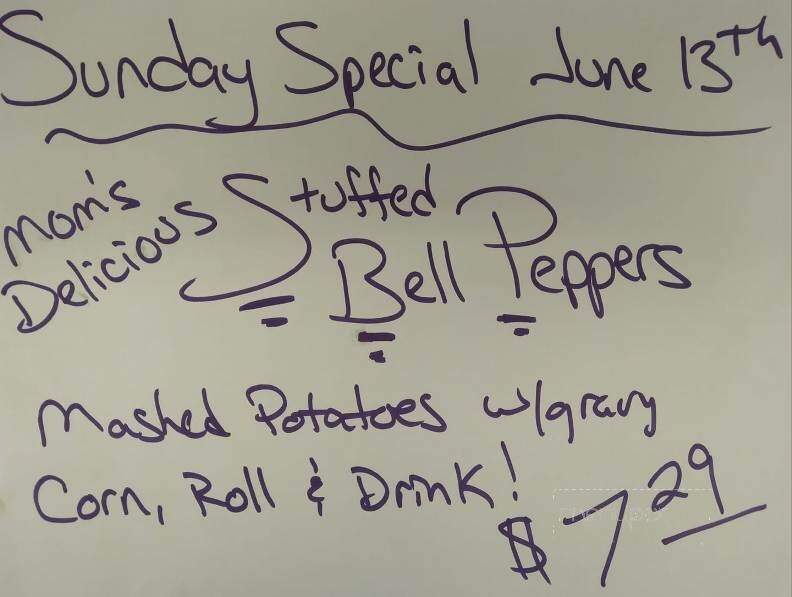 Sunday Special June 13th
Mom's
Delicious Stuffed
Bell Peppers
Mashed Potatoes w/gravy
Corn, Roll & Drink!
$7.29